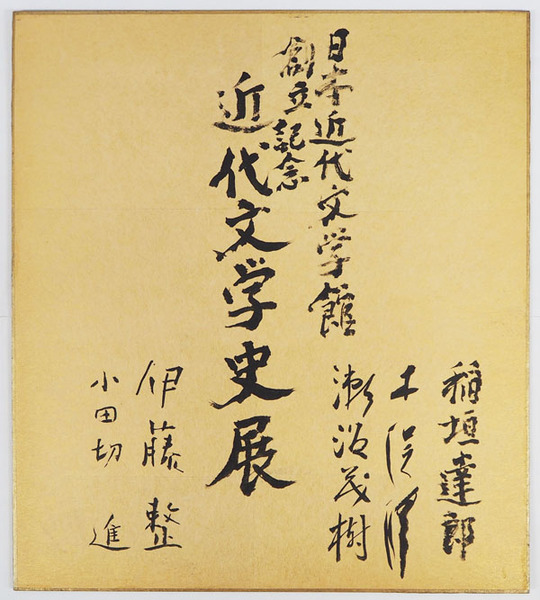 日本近代文学館
創立記念
近代文学史展
稲垣達郎
木俣修
瀬沼茂樹
伊藤整
小田切進